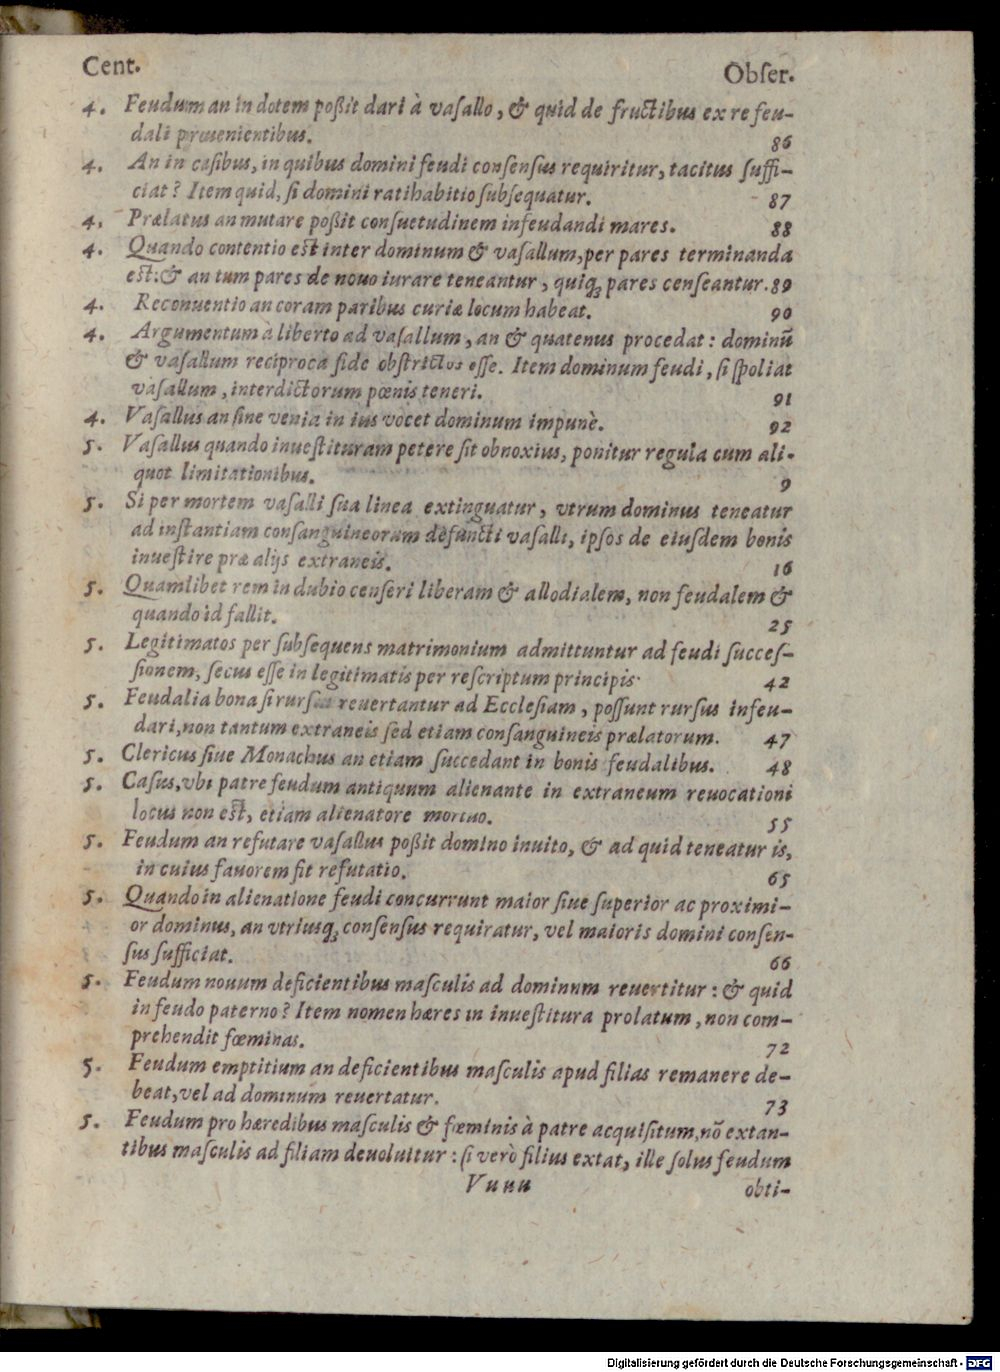 Cent. Obſer.
4. Feudum an in dotem poßit dari à vaſallo, & quid de fructibus ex re feu-
dali prouenientibus. 86
4. An in caſibus, in quibus domini feudi conſenſus requiritur, tacitus ſuffi-
ciat? Item quid, ſi domini ratihabitio ſubſequatur. 87
4. Prælatus an mutare poßit conſuetudinem infeudandi mares. 88
4. Quando contentio est inter dominum & vaſallum, per pares terminanda
est: & an tum pares de nouo iurare teneantur, quiq₃ pares cenſeantur. 89
4. Reconuentio an coram paribus curiæ locum habeat. 90
4. Argumentum à liberto ad vaſallum, an & quatenus procedat: dominū
& vaſallum reciproca fide obſtrictos eſſe. Item dominum feudi, ſi ſpoliat
vaſallum, interdictorum pœnis teneri. 91
4. Vaſallus an ſine venia in ius vocet dominum impunè. 92
5. Vaſallus quando inueſtituram petere ſit obnoxius, ponitur regula cum ali-
quot limitationibus. 9
5. Si per mortem vaſalli ſua linea extinguatur, vtrum dominus teneatur
ad inſtantiam conſanguineorum defuncti vaſalli, ipſos de eiuſdem bonis
inueſtire præ alijs extraneis. 16
5. Quamlibet rem in dubio cenſeri liberam & allodialem, non feudalem &
quando id fallit. 25
5. Legitimatos per ſubſequens matrimonium admittuntur ad feudi ſucceſ-
ſionem, ſecus eſſe in legitimatis per reſcriptum principis. 42
5. Feudalia bona ſi rurſus reuertantur ad Eccleſiam, poſſunt rurſus infeu-
dari, non tantum extraneis ſed etiam conſanguineis prælatorum. 47
5. Clericus ſiue Monachus an etiam ſuccedant in bonis feudalibus. 48
5. Caſus, vbi patre feudum antiquum alienante in extraneum reuocationi
locus non est, etiam alienatore mortuo. 55
5. Feudum an refutare vaſallus poßit domino inuito, & ad quid teneatur is,
in cuius fauorem fit refutatio. 65
5. Quando in alienatione feudi concurrunt maior ſiue ſuperior ac proximi-
or dominus, an vtriusq₃ conſenſus requiratur, vel maioris domini conſen-
ſus ſufficiat. 66
5. Feudum nouum deficientibus maſculis ad dominum reuertitur: & quid
in feudo paterno? Item nomen hæres in inueſtitura prolatum, non com-
prehendit fœminas. 72
5. Feudum emptitium an deficientibus maſculis apud filias remanere de-
beat, vel ad dominum reuertatur. 73
5. Feudum pro hæredibus maſculis & fœminis à patre acquiſitum, nō extan-
tibus maſculis ad filiam deuoluitur: ſi verò filius extat, ille ſolus feudum
Vuuu obti-
Digitalisierung gefördert durch die Deutsche Forschungsgemeinschaft - DFG